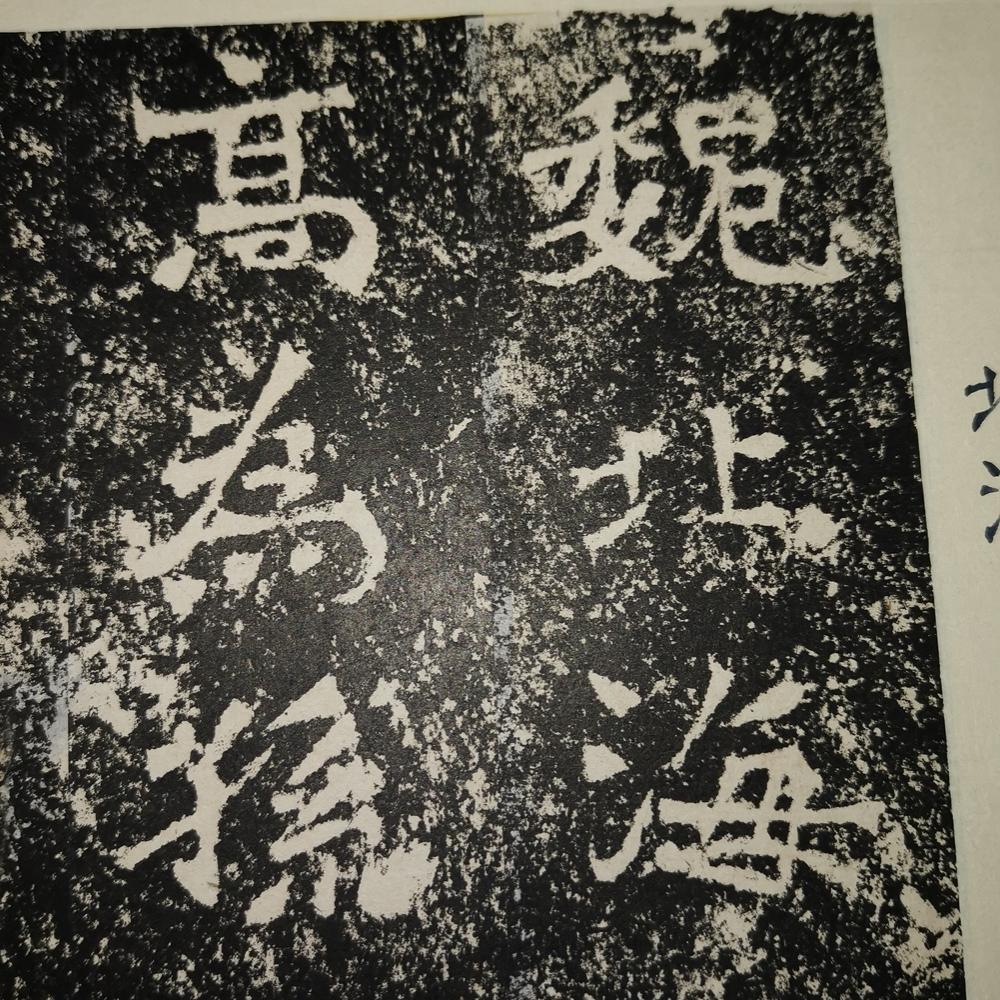 魏北海
高為孫